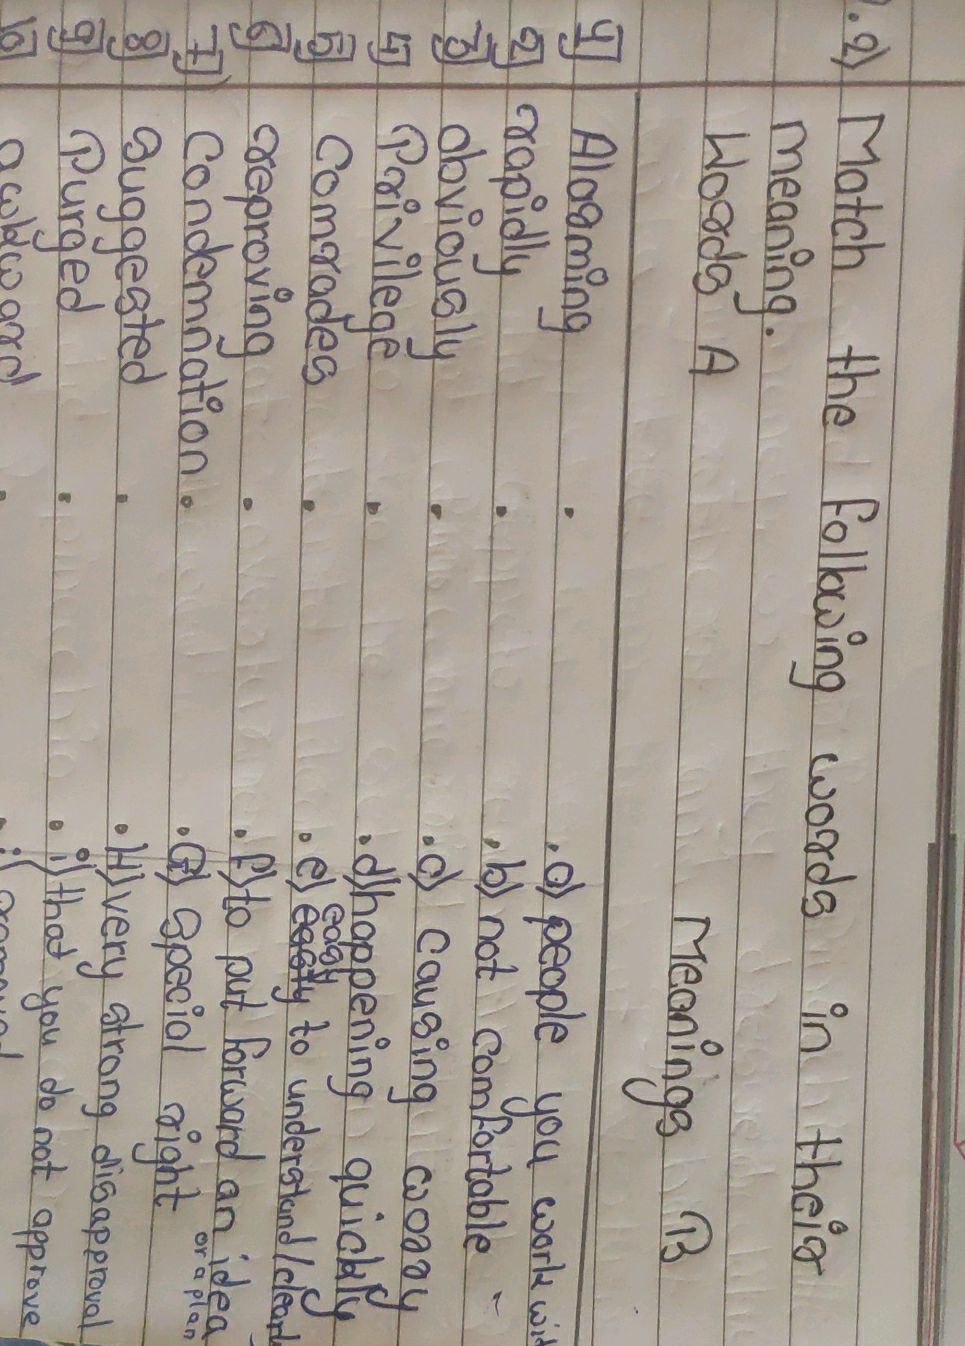 .2) Match the following words in their
meaning.
Words A Meanings B
1 Alarming . .a) people you work
2 rapidly . .b) not comfortable
3 obviously . .c) causing worry
4 Privilege . .d) happening quickly
5 Comrades . .e) easy to understand/
6 reproving . .f) to put forward an idea
or a plan
7 Condemnation . .G) special right
8 Suggested . .H) very strong disapproval
9 Purged . .i) that you do not approve
10 awkward . .j)